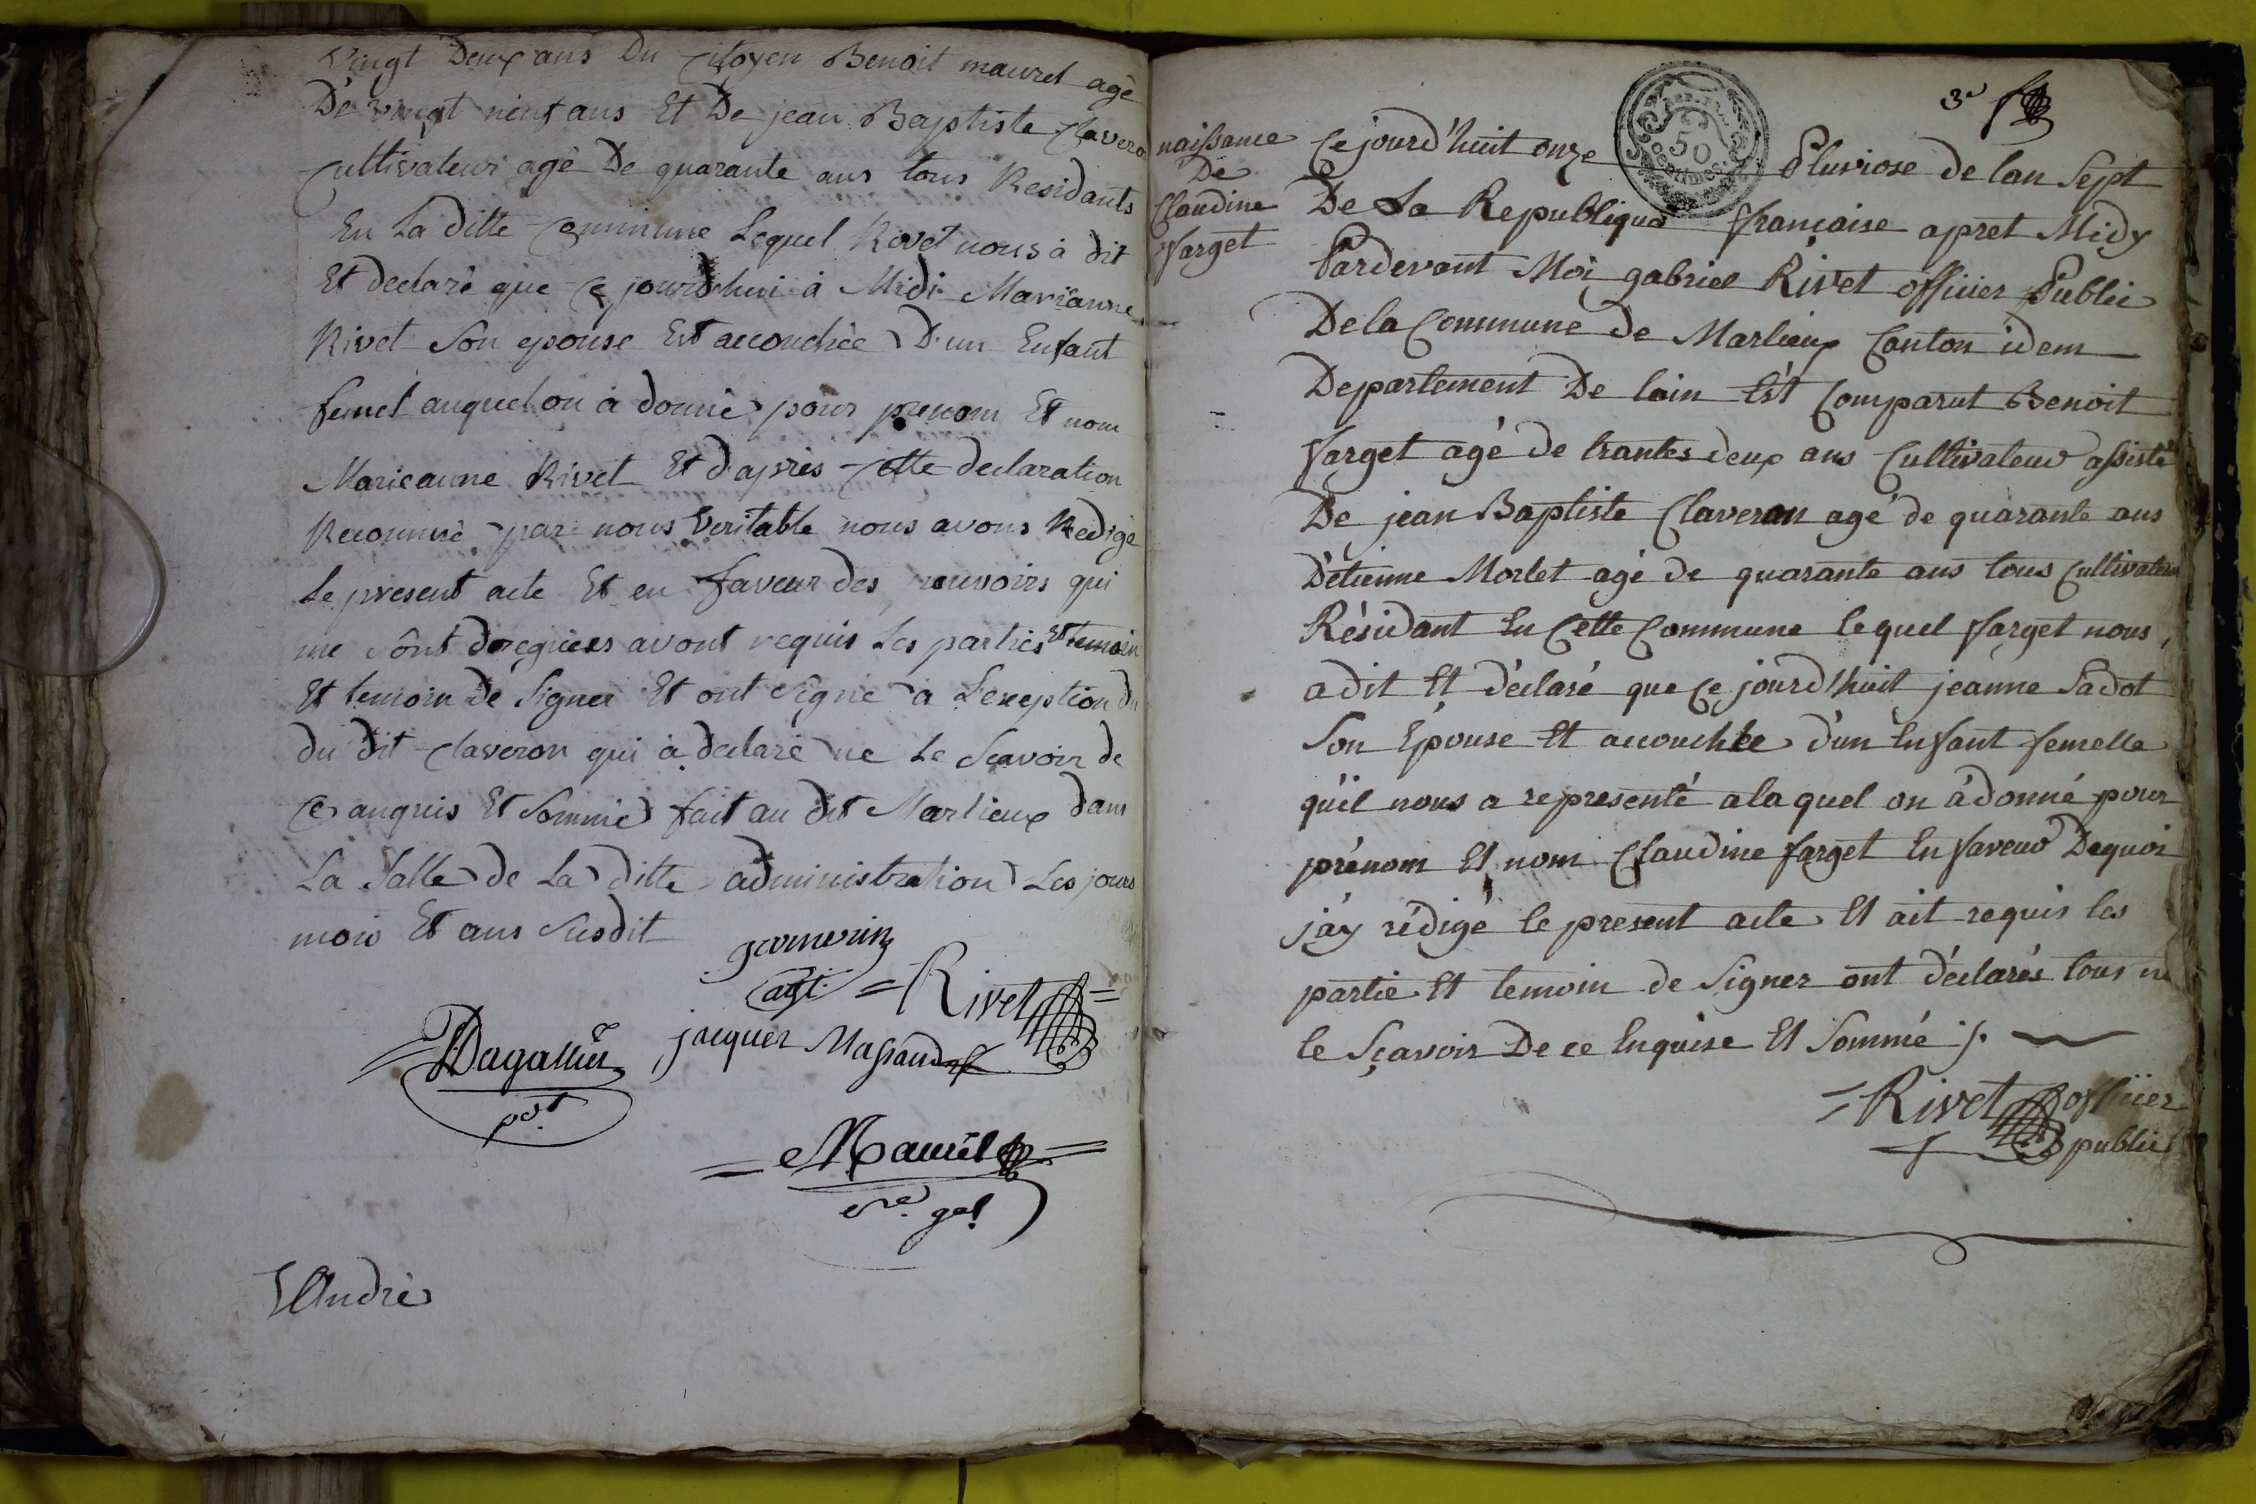 Vingt Deux ans Du Citoyen Benoit maurel agé
De vingt neuf ans Et De jean Baptiste Clavero
Cultivateur agé De quarante ans tous Residants
En La ditte Commune Lequel Rivet nous à dit
Et declaré que Ce jourd'hui à Midi Marieanne
Rivet Son epouse Est accouchée D'un Enfant
femel auquel on à donné pour prenom Et nom
Marieanne Rivet Et d'après Cette declaration
Reconnue par nous Veritable nous avons Redigé
Le present acte Et en faveur des pouvoirs qui
me sônt avont requis Les parties Et temoin
Et temoin de Signer Et ont Signé à L'exeption du
du dit Claveron qui à declaré ne Le Scavoir de
Ce anquis Et Sommé fait au dit Marlieux dans
La Salle de La ditte administration Les jours
mois Et ans Susdit
agt. = Rivet =
jacquer
Dagallier
pdt
= Maurel =
sre. gal
André
3e
naissance
De
Claudine
farget
50
Ce jourd'huit onze Pluviose de lan Sept
De La Republique française apret Midy
Pardevant Moi gabriel Rivet officier Public
De la Commune de Marlieux Canton idem
Departement De lain Est Comparut Benoit
farget agé de trantes deux ans Cultivateur assisté
De jean Baptiste Claveran agé de quarante ans
D'étienne Morlet agé de quarante ans tous Cultivateur
Résidant En Cette Commune lequel farget nous
a dit Et déclaré que Ce jourd'huit jeanne Sadot
Son Epouse Et accouchée d'un Enfant femelle
qu'il nous a representé a la quel on à donné pour
prénom Et nom Claudine farget En faveur Dequoi
j'ay rédigé le present acte Et ait requis les
partie Et temoin de Signer ont déclarés tous ne
le Sçavoir De ce Enquise Et Sommé ;.
= Rivet officier
public